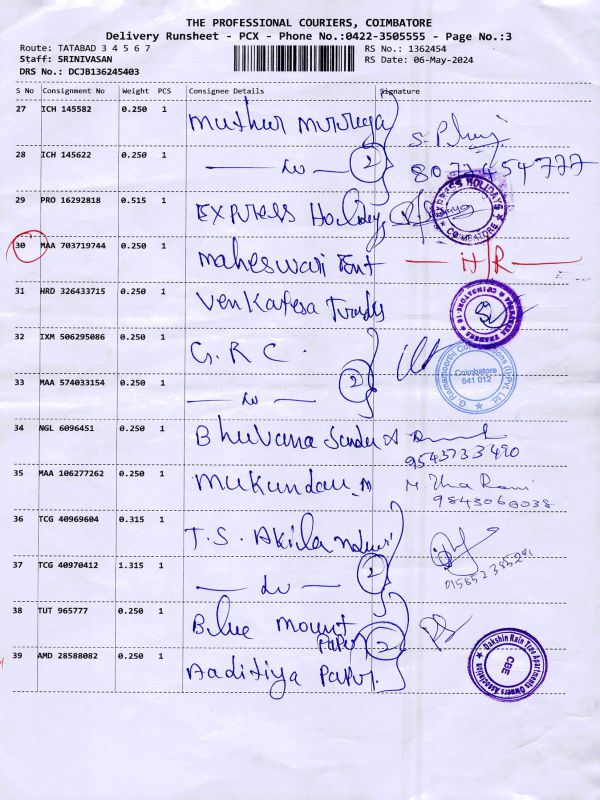 THE PROFESSIONAL COURIERS, COIMBATORE
Delivery Runsheet - PCX - Phone No.:0422-3505555 - Page No.:3
Route: TATABAD 3 4 5 6 7 RS No.: 1362454
Staff: SRINIVASAN RS Date: 06-May-2024
DRS No.: DCJB136245403
S No Consignment No Weight PCS Consignee Details Signature
27 ICH 145582 0.250 1 Muthur Muruga
28 ICH 145622 0.250 1 — Do — 2
29 PRO 16292818 0.515 1 Express Holidays
EXPRESS HOLIDAYS COIMBATORE
30 MAA 703719744 0.250 1 Maheswari H/R
31 HRD 326433715 0.250 1 Venkatesa
32 IXM 506295086 0.250 1 G.R.C.
33 MAA 574033154 0.250 1 — Do — 2
Coimbatore
641 012
34 NGL 6096451 0.250 1 Bhuvana
9543733490
35 MAA 106277262 0.250 1 Mukundan.M
9843060038
36 TCG 40969604 0.315 1 T.S. Akila
37 TCG 40970412 1.315 1 — Do — 2
38 TUT 965777 0.250 1 Blue Mount Paper 2
39 AMD 28588082 0.250 1 Aaditiya Paper.
Dakshin Rain Tree Apartments Owners Association
CBE